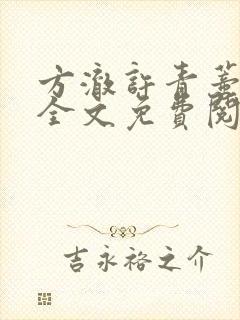 方澈許青薑
全文免費閱
吉永裕之介